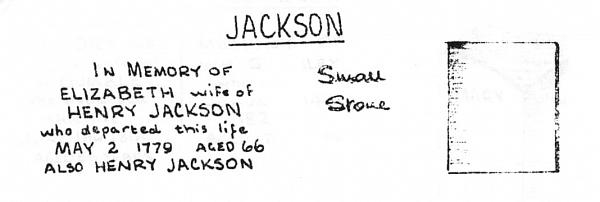 JACKSON
IN MEMORY OF
ELIZABETH wife of
HENRY JACKSON
who departed this life
MAY 2 1779 AGED 66
ALSO HENRY JACKSON
Small
Stone